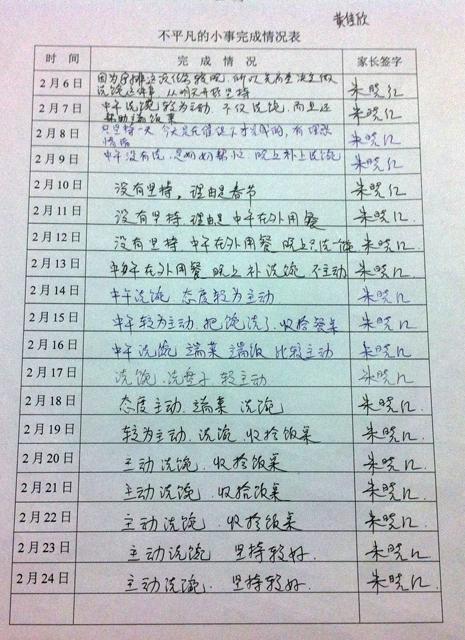 黄倩欣
不平凡的小事完成情况表
时 间 完 成 情 况 家长签字
2月6日 因为 所以 洗碗这件事，从明天开始坚持 朱晓红
2月7日 中午洗碗较为主动，不仅洗碗，而且还帮助端饭菜 朱晓红
2月8日 只坚持一天 今天是在催促下才完成的，有 情绪 朱晓红
2月9日 中午没有洗，是奶奶帮忙，晚上补上洗碗 朱晓红
2月10日 没有坚持，理由是春节 朱晓红
2月11日 没有坚持 理由 中午在外用餐 朱晓红
2月12日 没有坚持 中午在外用餐 晚上只洗一件 朱晓红
2月13日 中午在外用餐 晚上补洗碗 不主动 朱晓红
2月14日 中午洗碗 态度较为主动 朱晓红
2月15日 中午较为主动，把碗洗了，收拾餐桌 朱晓红
2月16日 中午洗碗 端菜 端饭 比较主动 朱晓红
2月17日 洗碗、洗筷子 较主动 朱晓红
2月18日 态度主动、端菜 洗碗 朱晓红.
2月19日 较为主动、洗碗 收拾饭菜 朱晓红.
2月20日 主动洗碗、收拾饭菜 朱晓红.
2月21日 主动洗碗、收拾饭菜 朱晓红.
2月22日 主动洗碗、收拾饭菜 朱晓红.
2月23日 主动洗碗 坚持较好. 朱晓红.
2月24日 主动洗碗. 坚持较好. 朱晓红.